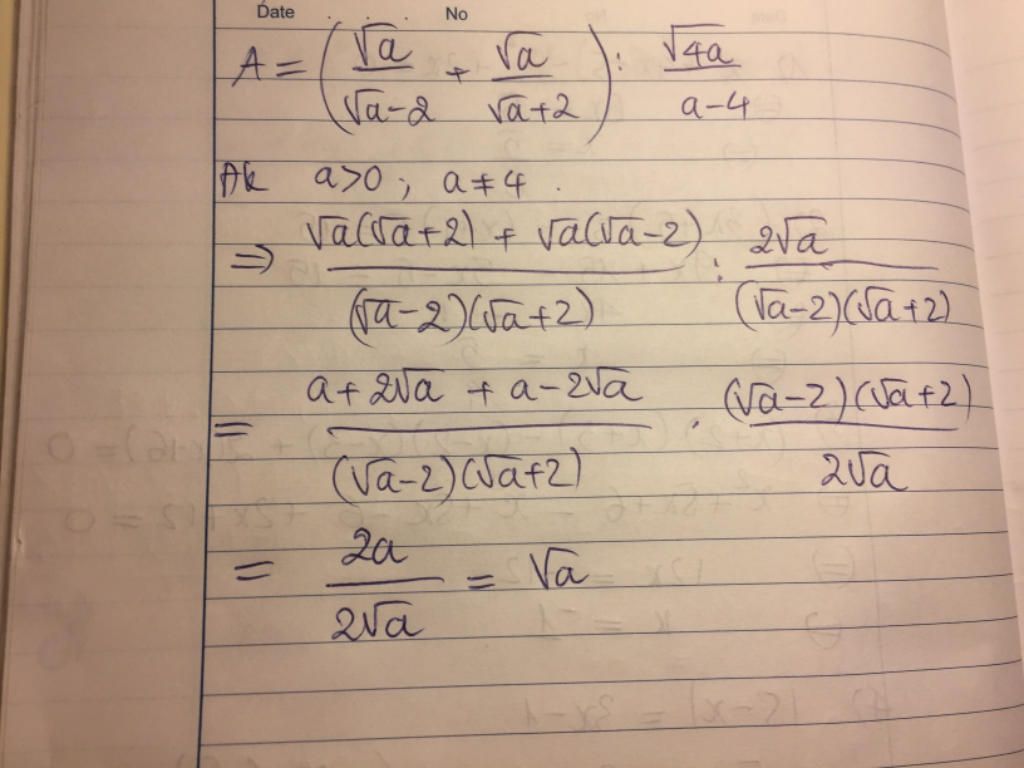 Date No
A = (√a/(√a-2) + √a/(√a+2)) : √4a/(a-4)
Đk a>0 ; a≠4 .
⇒ (√a(√a+2) + √a(√a-2))/((√a-2)(√a+2)) : 2√a/((√a-2)(√a+2))
= (a+2√a + a-2√a)/((√a-2)(√a+2)) . ((√a-2)(√a+2))/(2√a)
= 2a/(2√a) = √a